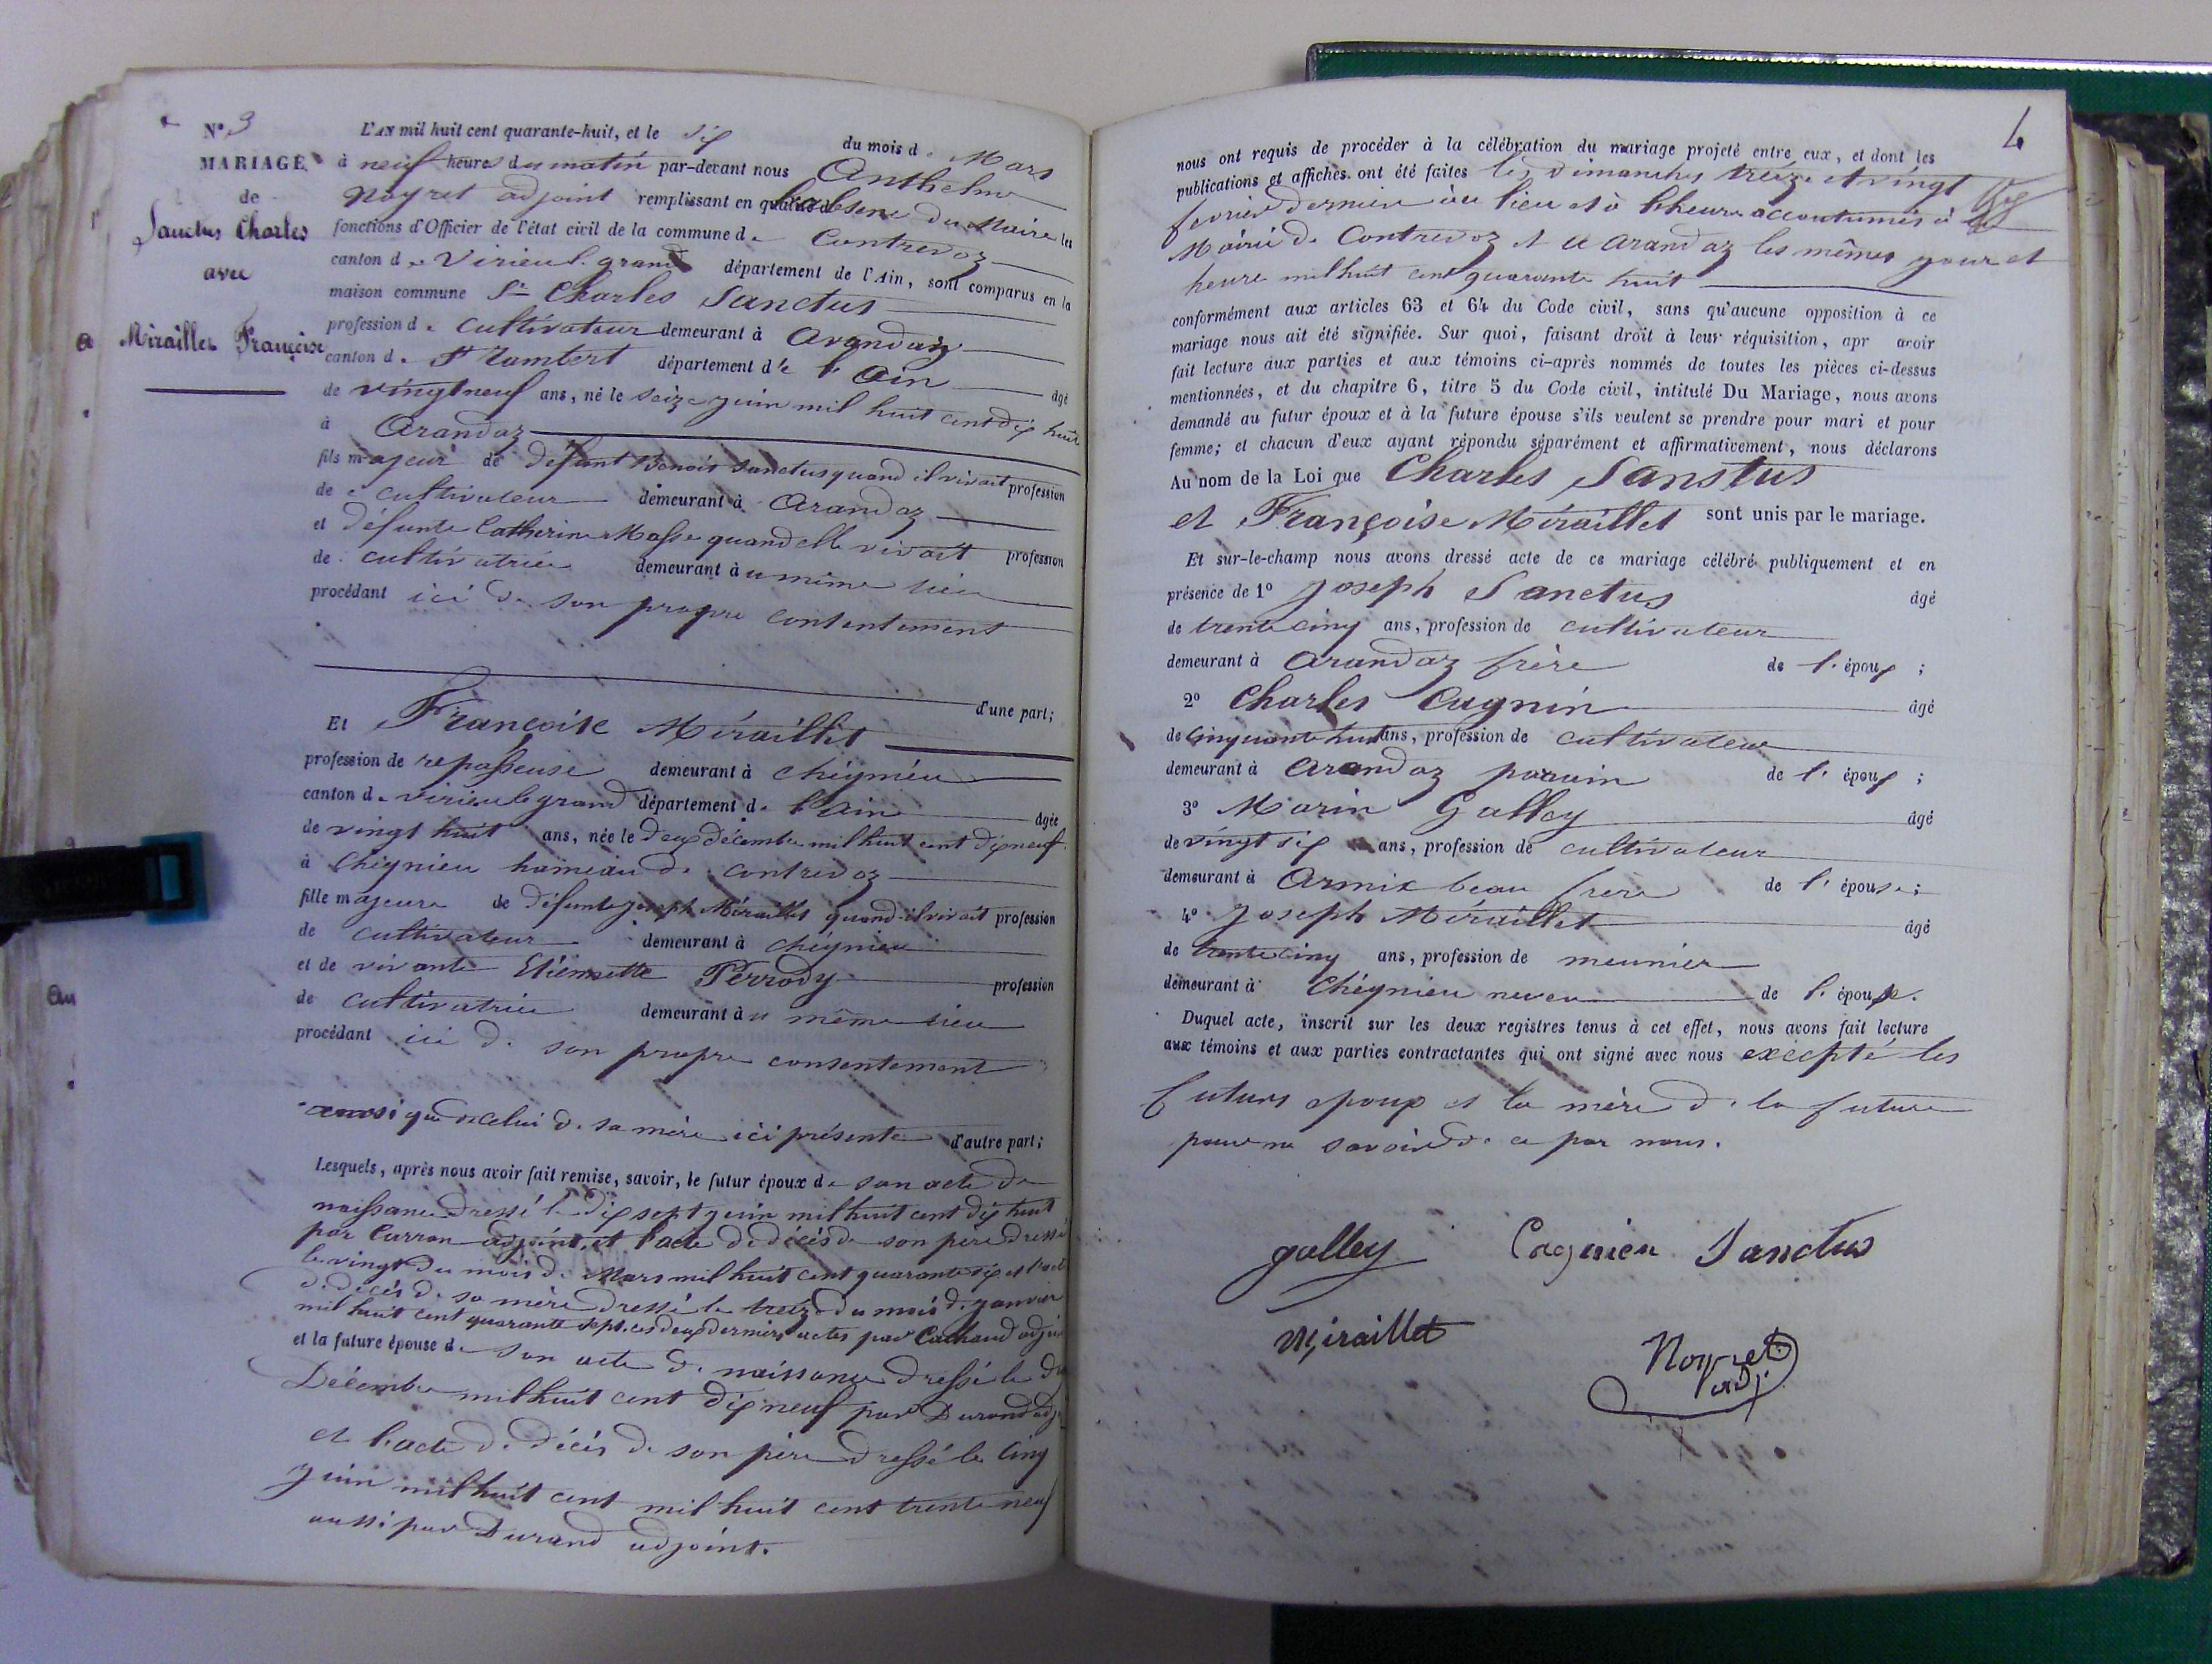 N° 3
MARIAGE
de
Sanctus Charles
avec
Miraillet Françoise
L'AN mil huit cent quarante-huit, et le six du mois de Mars
à neuf heures du matin par-devant nous Anthelme
Noyret adjoint remplissant en l'absence du Maire les
fonctions d'Officier de l'état civil de la commune de Contrevoz
canton de Virieu l. grand département de l'Ain, sont comparus en la
maison commune Sr Charles Sanctus
profession de cultivateur demeurant à Arandaz
canton de St Rambert département de l'Ain âgé
de vingt neuf ans, né le seize juin mil huit cent dix huit
à Arandaz
fils majeur de défunt Benoit Sanctus quand il vivait profession
de cultivateur demeurant à Arandaz
et défunte Catherine Masse quand elle vivait profession
de cultivatrice demeurant au même lieu
procédant ici de son propre consentement
d'une part;
Et Françoise Méraillet
profession de repasseuse demeurant à Chéignieu
canton de virieu le grand département de l'ain âgée
de vingt huit ans, née le deux décembre mil huit cent dix neuf
à Chégnieu hameau de Contrevoz
fille majeure de défunt Joseph Méraillet quand il vivait profession
de cultivateur demeurant à chégnieu
et de vivante Etiennette Perrody profession
de cultivatrice demeurant au même lieu
procédant ici de son propre consentement
ainsi que de celui de sa mère ici présente d'autre part;
Lesquels, après nous avoir fait remise, savoir, le futur époux de son acte de
naissance dressé le dix sept juin mil huit cent dix huit
par Curron adjoint, et l'acte de décès de son père dressé
le vingt du mois de Mars mil huit cent quarante six et l'acte
de décès de sa mère dressé le treize du mois de janvier
mil huit cent quarante sept, ces deux derniers actes par adjoint
et la future épouse de son acte de naissance dressé le
Décembre mil huit cent dix neuf par Durand adj
et l'acte de décès de son père dressé le cinq
juin mil huit cent mil huit cent trente neuf
aussi par Durand adjoint.
4
nous ont requis de procéder à la célébration du mariage projeté entre eux, et dont les
publications et affiches ont été faites les dimanches treize et vingt
fevrier dernier au lieu et à l'heure accoutumés à
Mairie de Contrevoz et à arandaz les mêmes jour et
heure mil huit cent quarante huit
conformément aux articles 63 et 64 du Code civil, sans qu'aucune opposition à ce
mariage nous ait été signifiée. Sur quoi, faisant droit à leur réquisition, apr avoir
fait lecture aux parties et aux témoins ci-après nommés de toutes les pièces ci-dessus
mentionnées, et du chapitre 6, titre 5 du Code civil, intitulé Du Mariage, nous avons
demandé au futur époux et à la future épouse s'ils veulent se prendre pour mari et pour
femme; et chacun d'eux ayant répondu séparément et affirmativement, nous déclarons
Au nom de la Loi que Charles Sanstus
et Françoise Méraillet sont unis par le mariage.
Et sur-le-champ nous avons dressé acte de ce mariage célébré publiquement et en
présence de 1° Joseph Sanctus âgé
de trente cinq ans, profession de cultivateur
demeurant à Arandaz frère de l'époux ;
2° Charles Cugnin âgé
de cinquante huit ans, profession de cultivateur
demeurant à Arandaz parrain de l'époux ;
3° Marin Galley âgé
de vingt six ans, profession de cultivateur
demeurant à Armix beau frère de l'épouse ;
4° Joseph Méraillet âgé
de trente cinq ans, profession de meunier
demeurant à Chégnieu neveu de l'épouse.
Duquel acte, inscrit sur les deux registres tenus à cet effet, nous avons fait lecture
aux témoins et aux parties contractantes qui ont signé avec nous excepté les
futurs epoux et la mère de la future
pour ne savoir de ce par nous.
galley Cagnieu Sanctus
Miraillet
Noyret
adj.